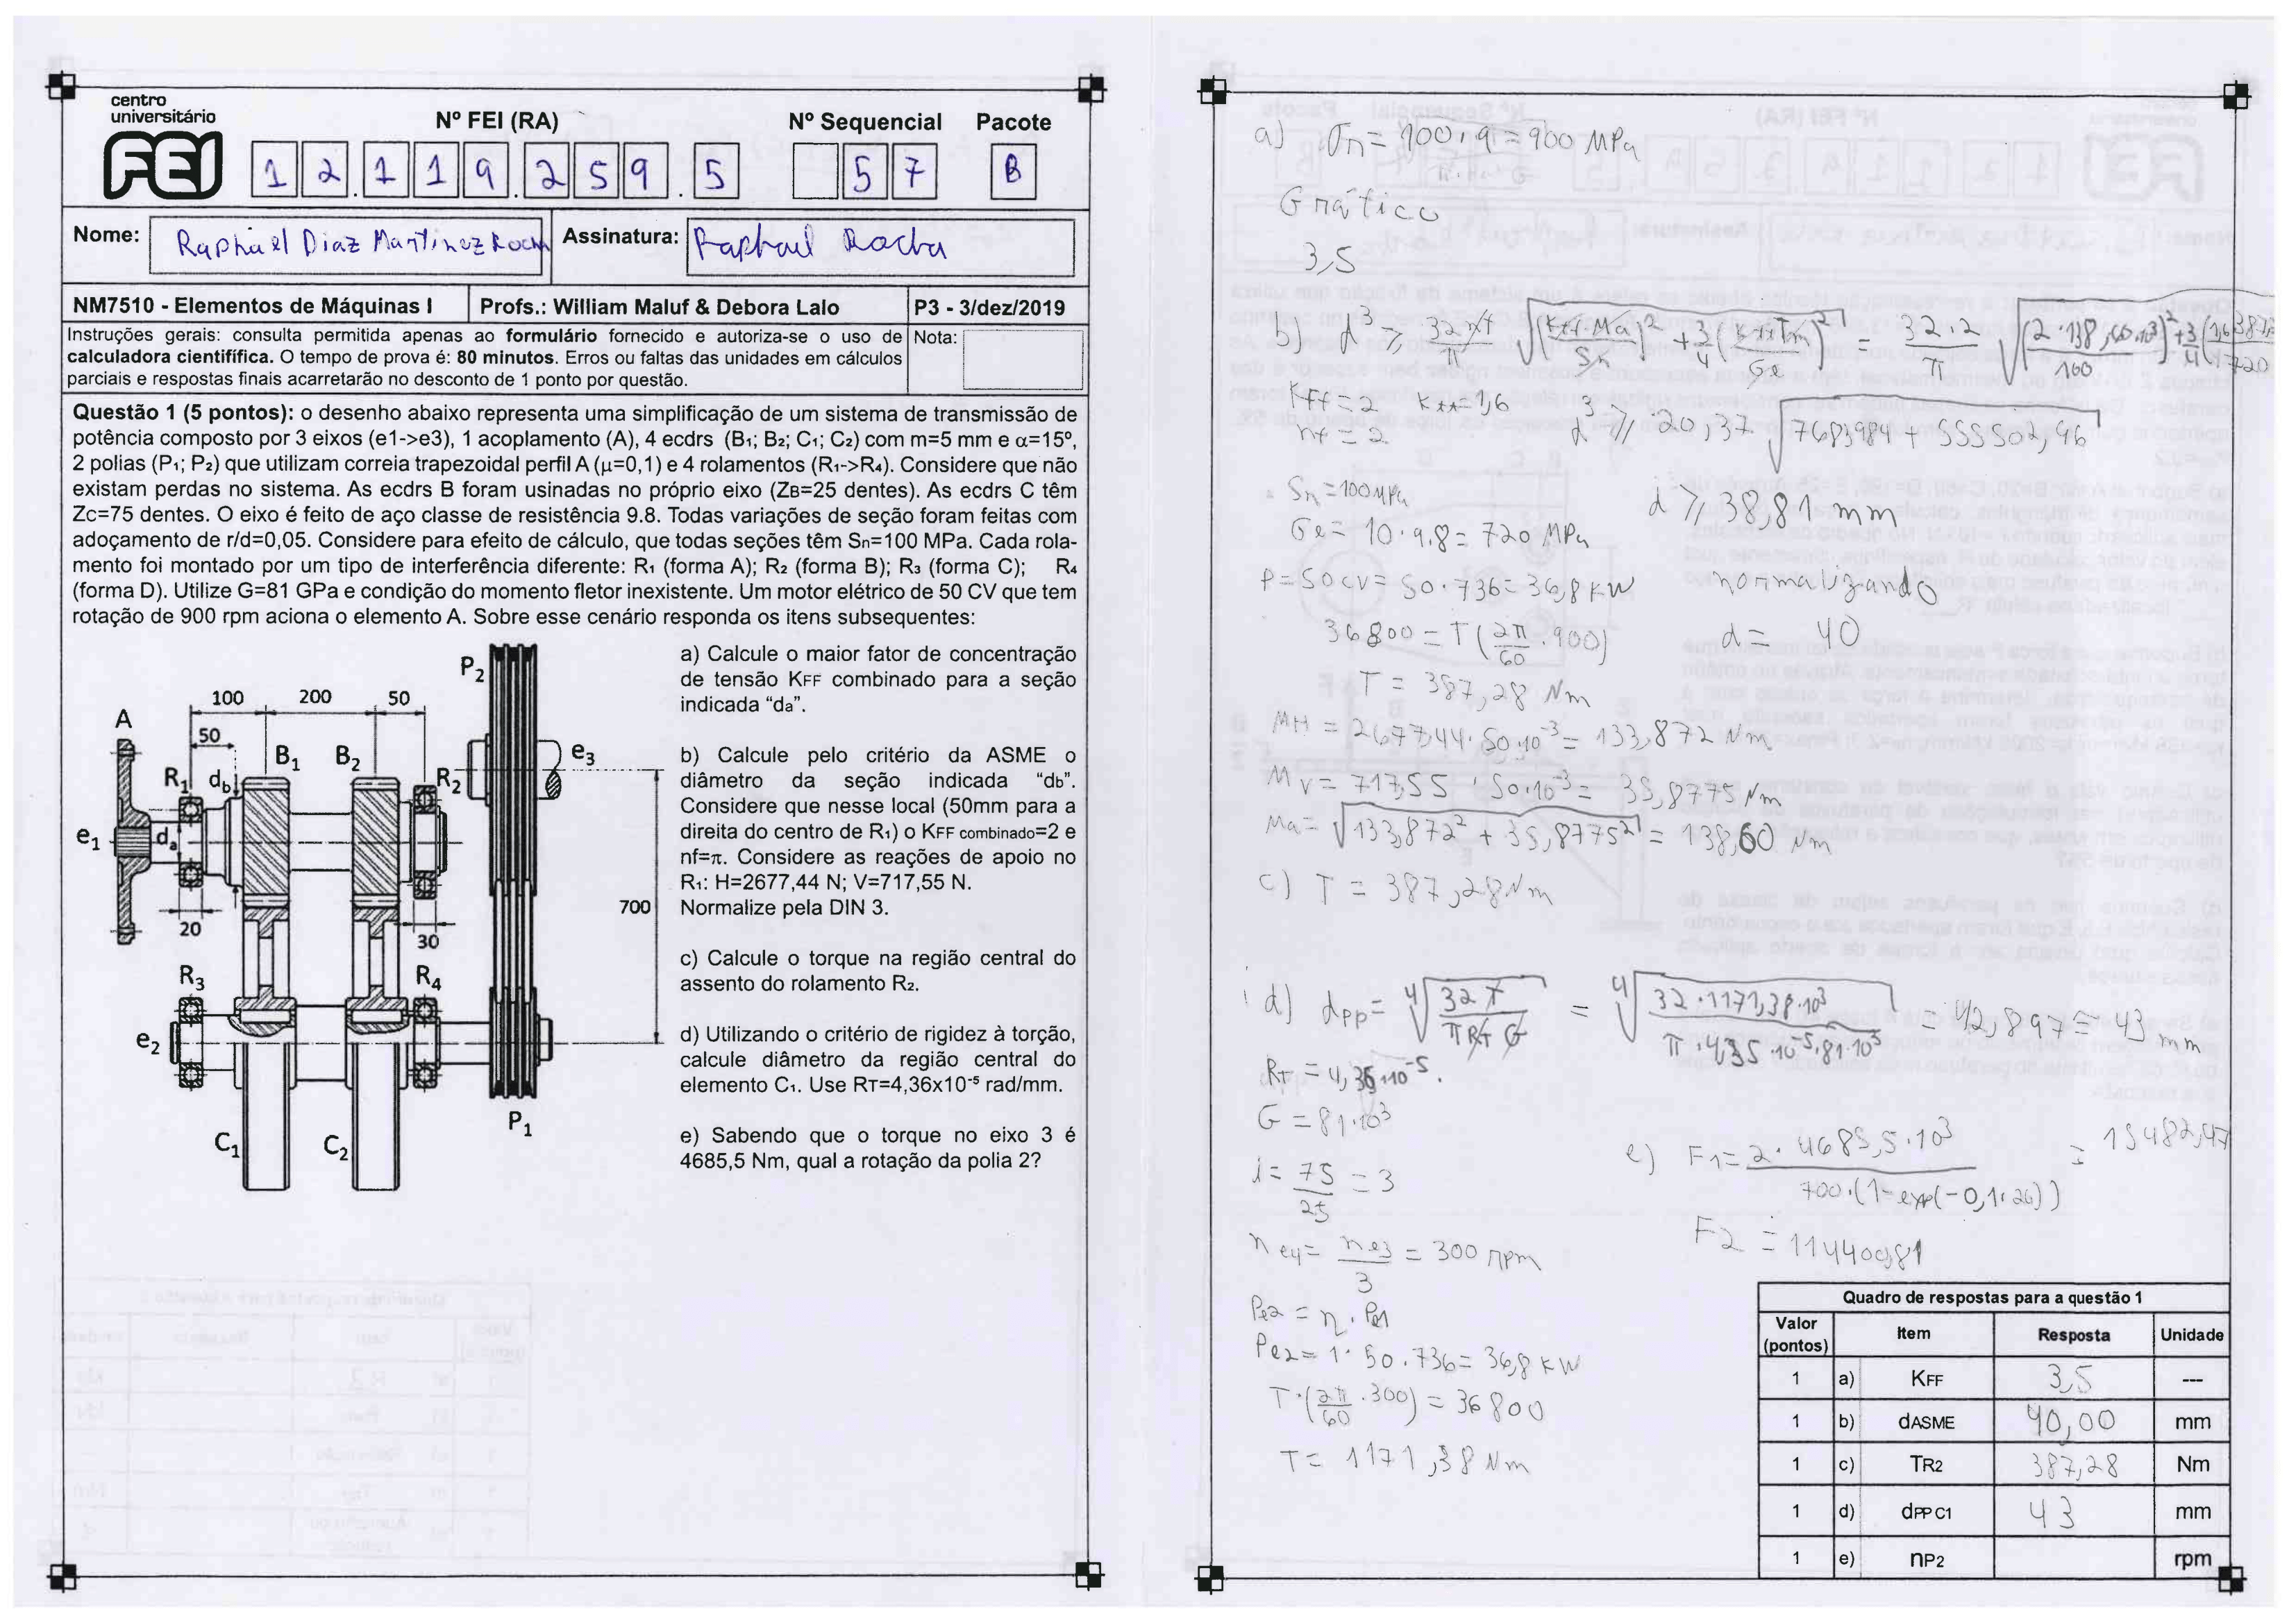 centro
universitário
FEI
Nº FEI (RA)
Nº Sequencial
Pacote
1 2 . 1 1 9 . 2 5 9 . 5
5 7
B
Nome: Raphael Diaz Martinez Rocha
Assinatura: Raphael Rocha
NM7510 - Elementos de Máquinas I
Profs.: William Maluf & Debora Lalo
P3 - 3/dez/2019
Instruções gerais: consulta permitida apenas ao formulário fornecido e autoriza-se o uso de
calculadora cientifífica. O tempo de prova é: 80 minutos. Erros ou faltas das unidades em cálculos
parciais e respostas finais acarretarão no desconto de 1 ponto por questão.
Nota:
Questão 1 (5 pontos): o desenho abaixo representa uma simplificação de um sistema de transmissão de
potência composto por 3 eixos (e1->e3), 1 acoplamento (A), 4 ecdrs (B1; B2; C1; C2) com m=5 mm e α=15º,
2 polias (P1; P2) que utilizam correia trapezoidal perfil A (μ=0,1) e 4 rolamentos (R1->R4). Considere que não
existam perdas no sistema. As ecdrs B foram usinadas no próprio eixo (ZB=25 dentes). As ecdrs C têm
Zc=75 dentes. O eixo é feito de aço classe de resistência 9.8. Todas variações de seção foram feitas com
adoçamento de r/d=0,05. Considere para efeito de cálculo, que todas seções têm Sn=100 MPa. Cada rola-
mento foi montado por um tipo de interferência diferente: R1 (forma A); R2 (forma B); R3 (forma C); R4
(forma D). Utilize G=81 GPa e condição do momento fletor inexistente. Um motor elétrico de 50 CV que tem
rotação de 900 rpm aciona o elemento A. Sobre esse cenário responda os itens subsequentes:
P2
100 200 50
A
50
B1 B2
R1 db
R2
e3
e1
da
700
20
30
R3
R4
e2
C1
C2
P1
a) Calcule o maior fator de concentração
de tensão KFF combinado para a seção
indicada "da".
b) Calcule pelo critério da ASME o
diâmetro da seção indicada "db".
Considere que nesse local (50mm para a
direita do centro de R1) o KFF combinado=2 e
nf=π. Considere as reações de apoio no
R1: H=2677,44 N; V=717,55 N.
Normalize pela DIN 3.
c) Calcule o torque na região central do
assento do rolamento R2.
d) Utilizando o critério de rigidez à torção,
calcule diâmetro da região central do
elemento C1. Use RT=4,36x10⁻⁵ rad/mm.
e) Sabendo que o torque no eixo 3 é
4685,5 Nm, qual a rotação da polia 2?
a) σn = 100 . 9 = 900 MPa
Gráfico
3,5
b) d³ ⩾ 32 nf/π √((Kff.Ma/Sn)² + 3/4 (Kft.Tm/Ge)²) = 32.2/π √((2.138,60.10³/100)² + 3/4 (1,6.387,/720
Kff = 2 Kft = 1,6
nf = 2
d³ ⩾ 20,37 √(7683984 + 555502,96)
Sn = 100 MPa
d ⩾ 38,81 mm
Ge = 10 . 9.8 = 720 MPa
P = 50 CV = 50 . 736 = 36,8 KW
normalizando
36800 = T (2π/60 . 900)
d = 40
T = 387,28 Nm
MH = 2677,44 . 50.10⁻³ = 133,872 Nm
MV = 717,55 . 50.10⁻³ = 35,8775 Nm
Ma = √(133,872² + 35,8775²) = 138,60 Nm
c) T = 387,28 Nm
d) dPP = ⁴√(32 T/π RT G) = ⁴√(32 . 1171,38.10³/π . 4,35 .10⁻⁵.81.10³) = 42,897 = 43 mm
RT = 4,36.10⁻⁵.
G = 81.10³
i = 75/25 = 3
e) F1 = 2 . 4685,5.10³/700.(1-exp(-0,1.26)) = 15482,47
F2 = 11440,81
ne4 = ne3/3 = 300 rpm
Pe2 = η . Pe1
Pe2 = 1 . 50 . 736 = 36,8 KW
T . (2π/60 . 300) = 36800
T = 1171,38 Nm
Quadro de respostas para a questão 1
Valor (pontos) Item Resposta Unidade
1 a) KFF 3,5 ---
1 b) dASME 40,00 mm
1 c) TR2 387,28 Nm
1 d) dPP C1 43 mm
1 e) nP2 rpm